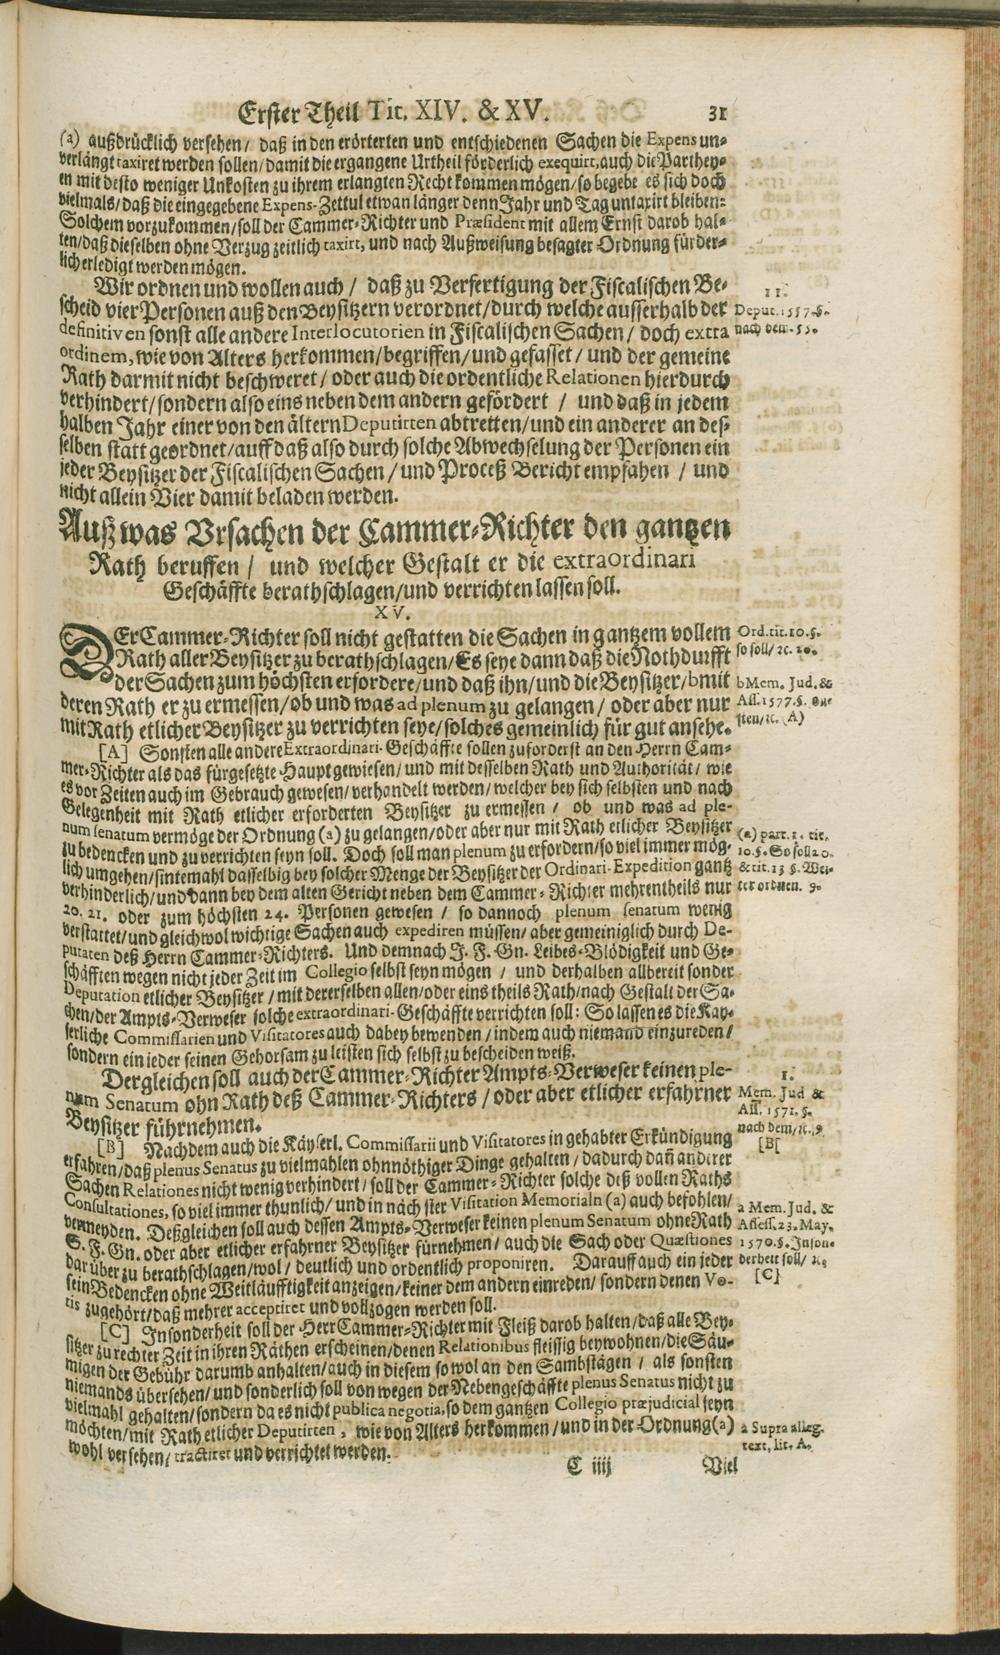 Erster Theil Tit. XIV. & XV. 31
(a) außdrücklich versehen / daß in den erörterten und entschiedenen Sachen die Expens un-
verlängt taxiret werden sollen / damit die ergangene Urtheil förderlich exequirt, auch die Parthey-
en mit desto weniger Unkosten zu ihrem erlangten Recht kommen mögen / so begebe es sich doch
vielmals / daß die eingegebene Expens-Zettul etwan länger denn Jahr und Tag untaxirt bleiben:
Solchem vorzukommen / soll der Cammer-Richter und Præsident mit allem Ernst darob hal-
ten / daß dieselben ohne Verzug zeitlich taxirt, und nach Außweisung besagter Ordnung fürder-
lich erledigt werden mögen.
Wir ordnen und wollen auch / daß zu Verfertigung der Fiscalischen Be-
scheid vier Personen auß den Beysitzern verordnet / durch welche ausserhalb der
definitiven sonst alle andere Interlocutorien in Fiscalischen Sachen / doch extra
ordinem, wie von Alters herkommen / begriffen / und gefasset / und der gemeine
Rath darmit nicht beschweret / oder auch die ordentliche Relationen hierdurch
verhindert / sondern also eins neben dem andern gefördert / und daß in jedem
halben Jahr einer von den ältern Deputirten abtretten / und ein anderer an des-
selben statt geordnet / auff daß also durch solche Abwechselung der Personen ein
jeder Beysitzer der Fiscalischen Sachen / und Proceß Bericht empfahen / und
nicht allein Vier damit beladen werden.
11.
Deput. 1557. §.
nach dem. 53.
Auß was Vrsachen der Cammer-Richter den gantzen
Rath beruffen / und welcher Gestalt er die extraordinari
Geschäffte berathschlagen / und verrichten lassen soll.
XV.
DEr Cammer-Richter soll nicht gestatten die Sachen in gantzem vollem
Rath aller Beysitzer zu berathschlagen / Es seye dann daß die Nothdurfft
der Sachen zum höchsten erfordere / und daß ihn / und die Beysitzer / b mit
deren Rath er zu ermessen / ob und was ad plenum zu gelangen / oder aber nur
mit Rath etlicher Beysitzer zu verrichten seye / solches gemeinlich für gut ansehe.
Ord. tit. 10. §.
so soll / ꝛc. 20.
b Mem. Jud. &
Ass. 1577. §.
sten / ꝛc. (A)
[A] Sonsten alle andere Extraordinari-Geschäffte sollen zuforderst an den Herrn Cam-
mer-Richter als das fürgesetzte Haupt gewiesen / und mit desselben Rath und Authorität / wie
es vor Zeiten auch im Gebrauch gewesen / verhandelt werden / welcher bey sich selbsten und nach
Gelegenheit mit Rath etlicher erforderten Beysitzer zu ermessen / ob und was ad ple-
num senatum vermöge der Ordnung (a) zu gelangen / oder aber nur mit Rath etlicher Beysitzer
zu bedencken und zu verrichten seyn soll. Doch soll man plenum zu erfordern / so viel immer mög-
lich umgehen / sintemahl dasselbig bey solcher Menge der Beysitzer der Ordinari-Expedition gantz
verhinderlich / und dann bey dem alten Gericht neben dem Cammer-Richter mehrentheils nur
20. 21. oder zum höchsten 24. Personen gewesen / so dannoch plenum senatum wenig
verstattet / und gleichwol wichtige Sachen auch expediren müssen / aber gemeiniglich durch De-
putaten deß Herrn Cammer-Richters. Und demnach J. F. Gn. Leibes-Blödigkeit und Ge-
schäfften wegen nicht jeder Zeit im Collegio selbst seyn mögen / und derhalben allbereit sonder
Deputation etlicher Beysitzer / mit dererselben allen / oder eins theils Rath / nach Gestalt der Sa-
chen / der Ampts-Verweser solche extraordinari-Geschäffte verrichten soll: So lassen es die Kay-
serliche Commissarien und Visitatores auch dabey bewenden / indem auch niemand einzureden /
sondern ein jeder seinen Gehorsam zu leisten sich selbst zu bescheiden weiß.
(a) part. 1. tit.
10. §. So soll 20.
& tit. 13 §. Wei-
ter ordnen. 9.
Dergleichen soll auch der Cammer-Richter Ampts-Verweser keinen ple-
num Senatum ohn Rath deß Cammer-Richters / oder aber etlicher erfahrner
Beysitzer führnehmen.
1.
Mem. Jud &
Ass. 1571. §.
nach dem / ꝛc. 9
[B[
[B] Nachdem auch die Käyserl. Commissarii und Visitatores in gehabter Erkündigung
erfahren / daß plenus Senatus zu vielmahlen ohnnöthiger Dinge gehalten / dadurch dañ anderer
Sachen Relationes nicht wenig verhindert / soll der Cammer-Richter solche diß vollen Raths
Consultationes, so viel immer thunlich / und in nächster Visitation Memorialn (a) auch befohlen /
vermeyden. Deßgleichen soll auch dessen Ampts-Verweser keinen plenum Senatum ohne Rath
S. F. Gn. oder aber etlicher erfahrner Beysitzer fürnehmen / auch die Sach oder Quæstiones
darüber zu berathschlagen / wol / deutlich und ordentlich proponiren. Darauff auch ein jeder
sein Bedencken ohne Weitläufftigkeit anzeigen / keiner dem andern einreden / sondern denen Vo-
tis zugehört / daß mehrer acceptiret und vollzogen werden soll.
a Mem. Jud. &
Assess. 23. May.
1570. §. Inson-
derheit soll / ꝛc.
[C]
[C] Insonderheit soll der Herr Cammer-Richter mit Fleiß darob halten / daß alle Bey-
sitzer zu rechter Zeit in ihren Räthen erscheinen / denen Relationibus fleissig beywohnen / die Säu-
migen der Gebühr darumb anhalten / auch in diesem sowol an den Sambstägen / als sonsten
niemands übersehen / und sonderlich soll von wegen der Nebengeschäffte plenus Senatus nicht zu
vielmahl gehalten / sondern da es nicht publica negotia, so dem gantzen Collegio præjudicial seyn
möchten / mit Rath etlicher Deputirten, wie von Alters herkommen / und in der Ordnung (a)
wohl versehen / tractiret und verrichtet werden.
a Supra alleg.
text, lit. A.
C iiij Viel